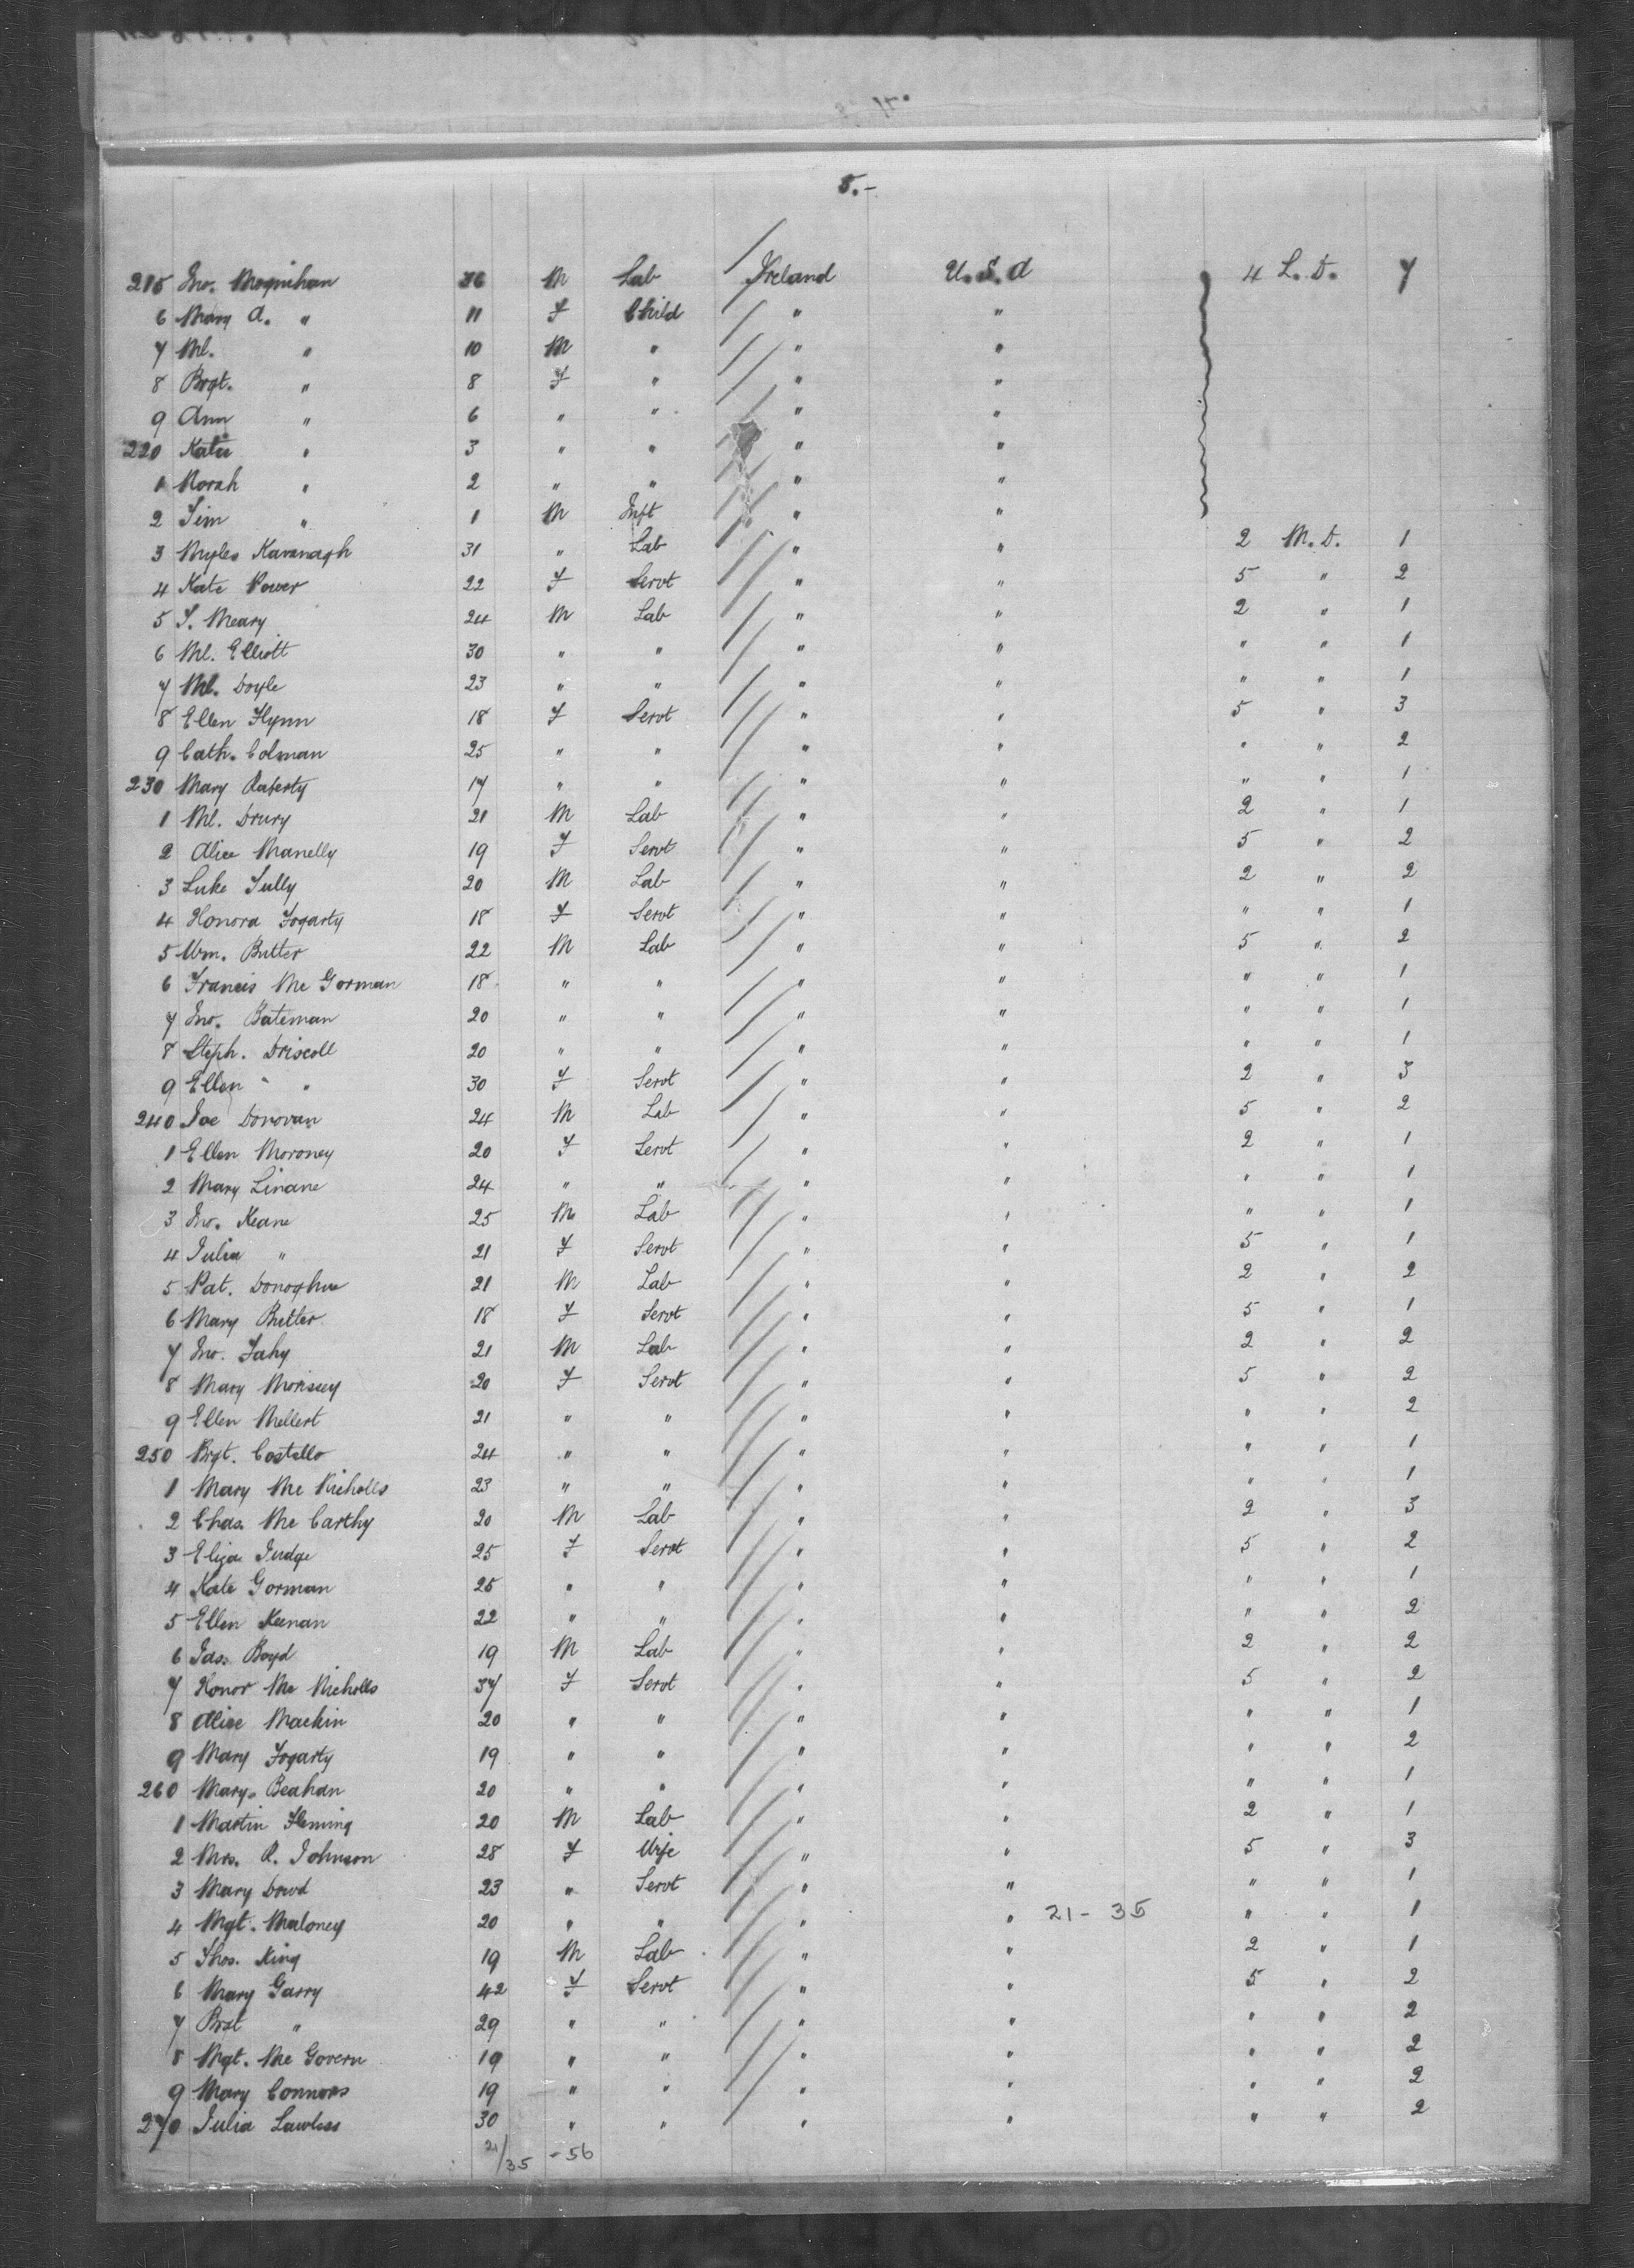 5.-
215 Jno. Moynihan 36 M Lab Ireland U.S.A 4 L.D. 7
6 Mary A. " 11 F Child " "
7 Ml. " 10 M " " "
8 Brgt. " 8 F " " "
9 Ann " 6 " " " "
220 Katie " 3 " " " "
1 Norah " 2 " " " "
2 Tim " 1 M Inft " "
3 Myles Kavanagh 31 " Lab " " 2 M.D. 1
4 Kate Power 22 F Servt " " 5 " 2
5 T. Meary 24 M Lab " " 2 " 1
6 Ml. Elliott 30 " " " " " " 1
7 Ml. Doyle 23 " " " " " " 1
8 Ellen Flynn 18 F Servt " " 5 " 3
9 Cath. Colman 25 " " " " " " 2
230 Mary Raferty 17 " " " " " " 1
1 Ml. Drury 21 M Lab " " 2 " 1
2 Alice Manelly 19 F Servt " " 5 " 2
3 Luke Tully 20 M Lab " " 2 " 2
4 Honora Fogarty 18 F Servt " " " " 1
5 Wm. Butter 22 M Lab " " 5 " 2
6 Francis Mc Gorman 18 " " " " " " 1
7 Jno. Bateman 20 " " " " " " 1
8 Steph. Driscoll 20 " " " " " " 1
9 Ellen " 30 F Servt " " 2 " 3
240 Joe Donovan 24 M Lab " " 5 " 2
1 Ellen Moroney 20 F Servt " " 2 " 1
2 Mary Linane 24 " " " " " " 1
3 Jno. Keane 25 M Lab " " " " 1
4 Julia " 21 F Servt " " 5 " 1
5 Pat. Donoghue 21 M Lab " " 2 " 2
6 Mary Butler 18 F Servt " " 5 " 1
7 Jno. Fahy 21 M Lab " " 2 " 2
8 Mary Morissey 20 F Servt " " 5 " 2
9 Ellen Mellert 21 " " " " " " 2
250 Brgt. Costello 24 " " " " " " 1
1 Mary Mc Nicholls 23 " " " " " " 1
2 Chas. Mc Carthy 20 M Lab " " 2 " 3
3 Eliza Judge 25 F Servt " " 5 " 2
4 Kate Gorman 25 " " " " " " 1
5 Ellen Keenan 22 " " " " " " 2
6 Jas. Boyd 19 M Lab " " 2 " 2
7 Honor Mc Nicholls 37 F Servt " " 5 " 2
8 Alice Mackin 20 " " " " " " 1
9 Mary Fogarty 19 " " " " " " 2
260 Mary Beahan 20 " " " " " " 1
1 Martin Fleming 20 M Lab " " 2 " 1
2 Mrs. R. Johnson 28 F Wife " " 5 " 3
3 Mary Dowd 23 " Servt " " " " 1
4 Mgt. Maloney 20 " " " " 21-35 " " 1
5 Thos. King 19 M Lab " " 2 " 1
6 Mary Garry 42 F Servt " " 5 " 2
7 Brgt " 29 " " " " " " 2
8 Mgt. Mc Govern 19 " " " " " " 2
9 Mary Connors 19 " " " " " " 2
270 Julia Lawless 30 " " " " " " 2
21/35 -56